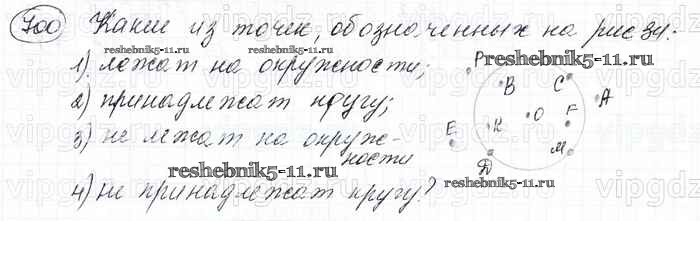 700 Какие из точек, обозначенных на рис 34:
reshebnik5-11.ru reshebnik5-11.ru
1) лежат на окружности;
2) принадлежат кругу;
3) не лежат на окруж-
ности
4) не принадлежат кругу?
P
B C
A
O
F
K
E
D
M
reshebnik5-11.ru
reshebnik5-11.ru
reshebnik5-11.ru
vipgdz